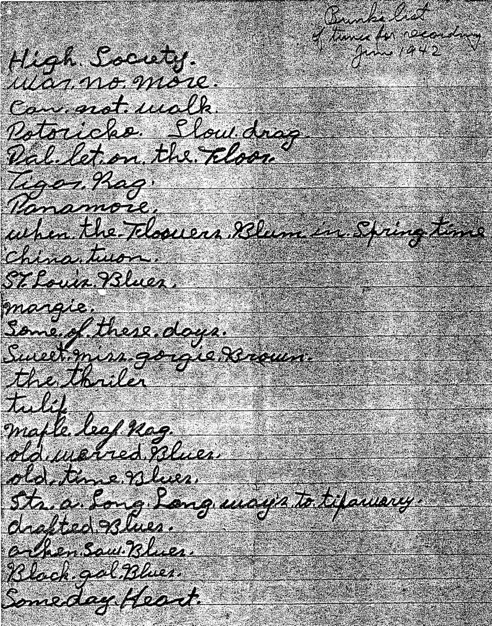 Bunk's list
of tunes for recording
Jun 1942
High. Society.
war. no. more.
Can. not. walk.
Potoricho. Slow. drag
Bal. let. on. the. Floor.
Tigar. Rag.
Panamore.
when. the. Floouers. Blum. in. Spring. time
china. twon.
St. Louis. Blues.
margie.
Some. of. these. days.
Sweet. miss. gorgie. Brown.
the. thriler
tulip
maple. leaf. Rag.
old. worred. Blues.
old. time. Blues.
Sts. a. Long. Long. ways. to. tipawary.
drafted. Blues.
arken. Saw. Blues.
Black. gal. Blues.
Someday. Heart.